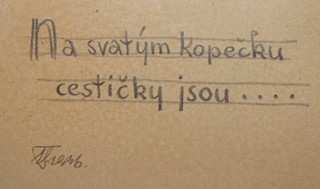 Na svatým kopečku
cestičky jsou ....